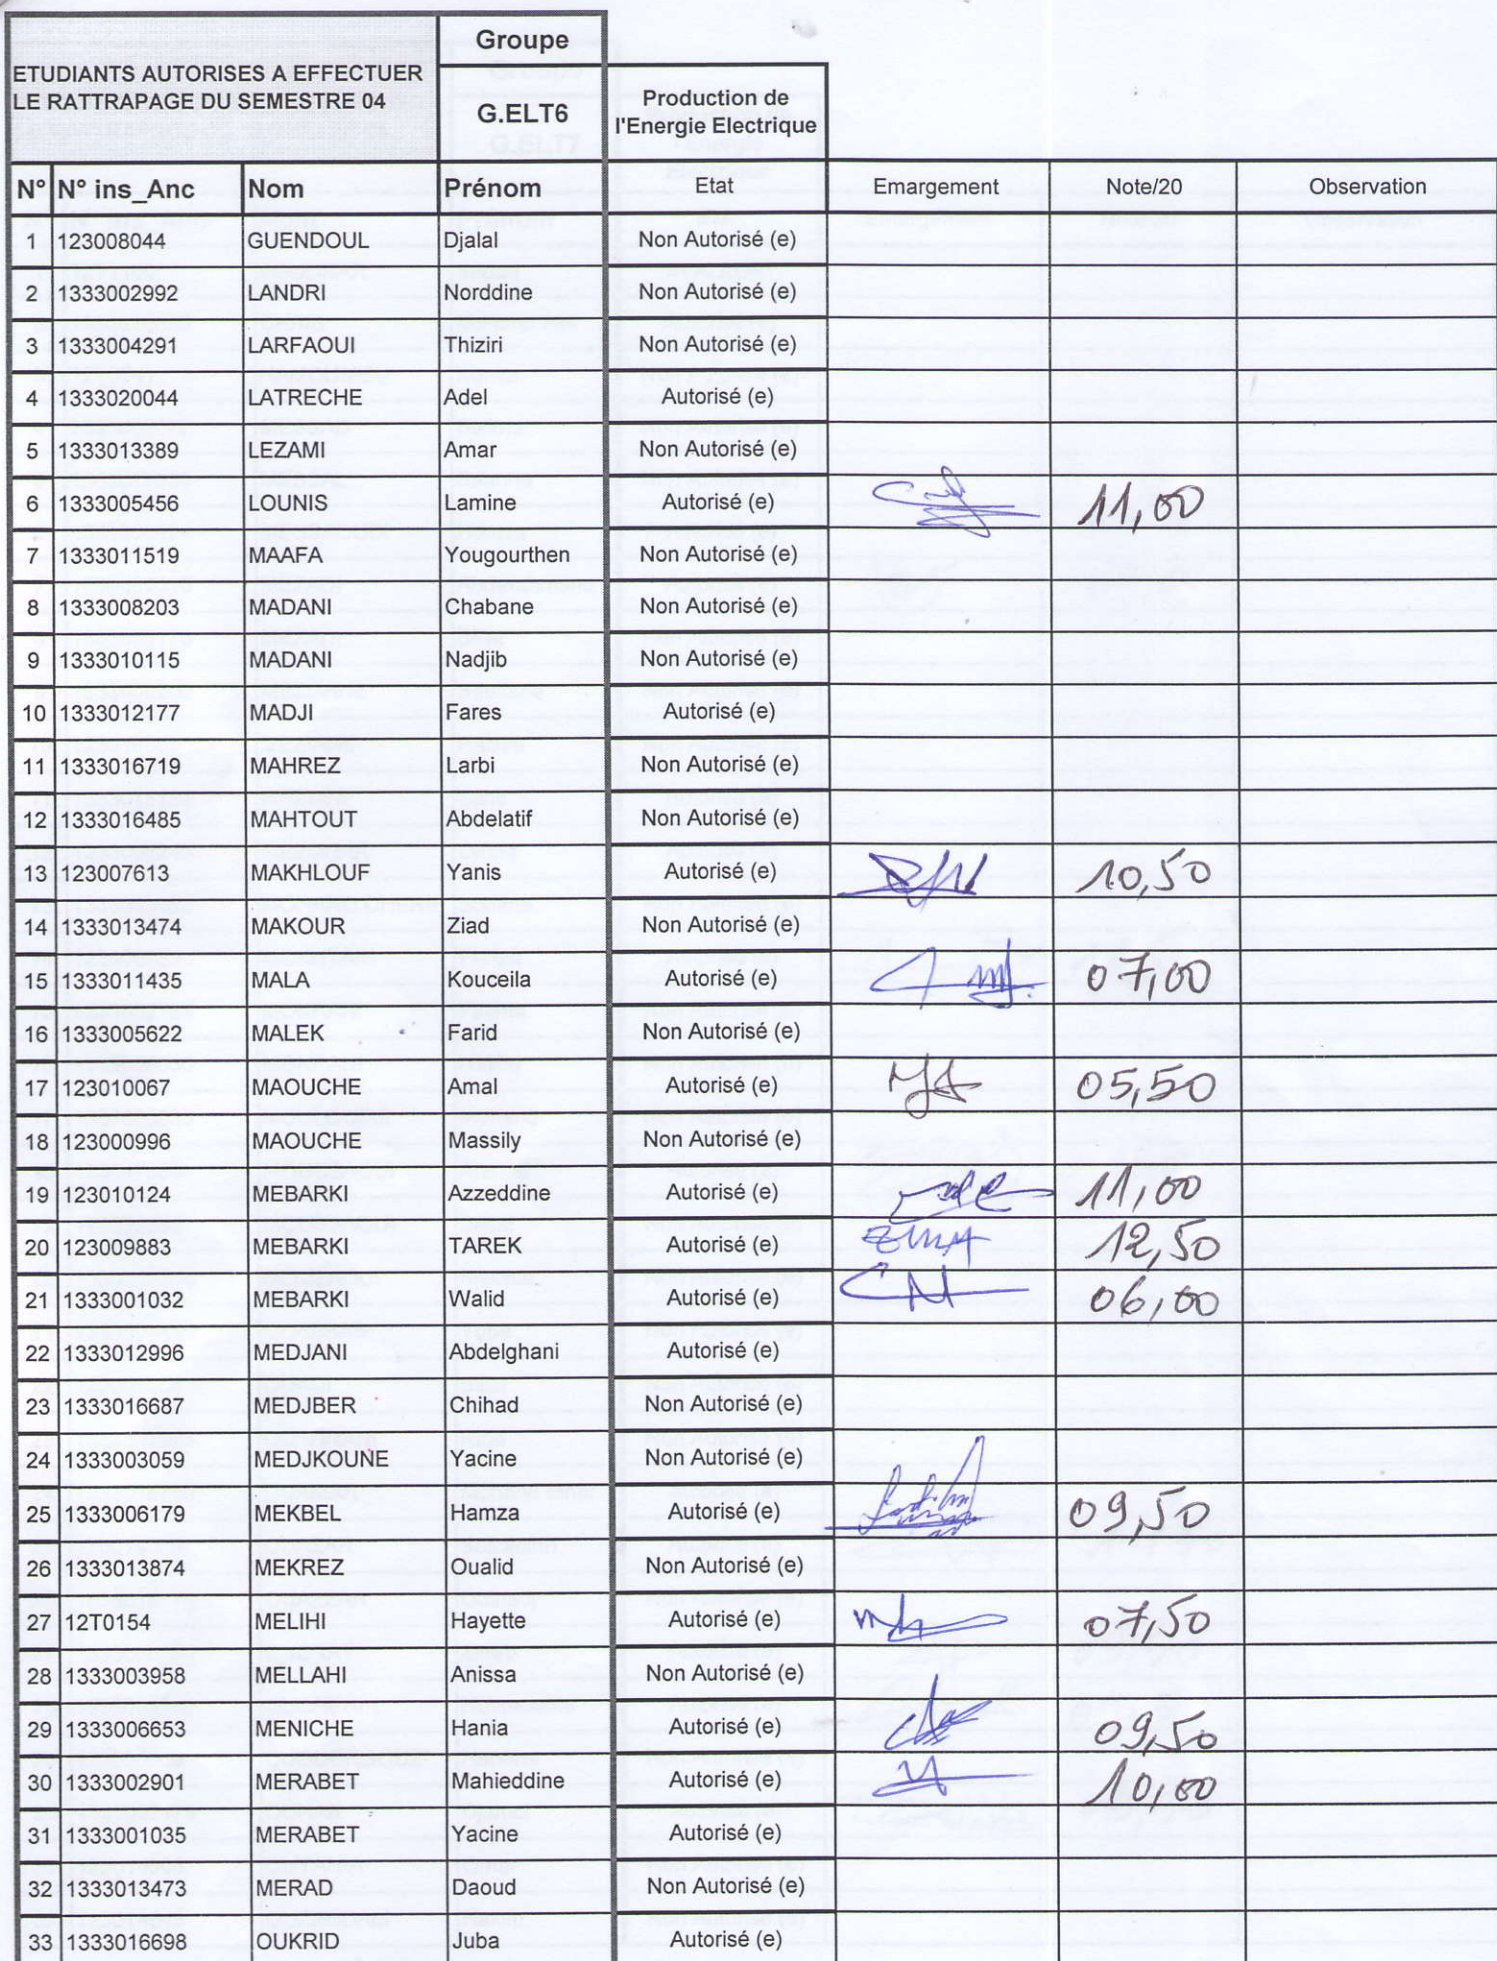 ETUDIANTS AUTORISES A EFFECTUER
LE RATTRAPAGE DU SEMESTRE 04
Groupe
G.ELT6
Production de
l'Energie Electrique
N° N° ins_Anc Nom Prénom Etat Emargement Note/20 Observation
1 123008044 GUENDOUL Djalal Non Autorisé (e)
2 1333002992 LANDRI Norddine Non Autorisé (e)
3 1333004291 LARFAOUI Thiziri Non Autorisé (e)
4 1333020044 LATRECHE Adel Autorisé (e)
5 1333013389 LEZAMI Amar Non Autorisé (e)
6 1333005456 LOUNIS Lamine Autorisé (e) 11,00
7 1333011519 MAAFA Yougourthen Non Autorisé (e)
8 1333008203 MADANI Chabane Non Autorisé (e)
9 1333010115 MADANI Nadjib Non Autorisé (e)
10 1333012177 MADJI Fares Autorisé (e)
11 1333016719 MAHREZ Larbi Non Autorisé (e)
12 1333016485 MAHTOUT Abdelatif Non Autorisé (e)
13 123007613 MAKHLOUF Yanis Autorisé (e) 10,50
14 1333013474 MAKOUR Ziad Non Autorisé (e)
15 1333011435 MALA Kouceila Autorisé (e) 07,00
16 1333005622 MALEK Farid Non Autorisé (e)
17 123010067 MAOUCHE Amal Autorisé (e) 05,50
18 123000996 MAOUCHE Massily Non Autorisé (e)
19 123010124 MEBARKI Azzeddine Autorisé (e) 11,00
20 123009883 MEBARKI TAREK Autorisé (e) 12,50
21 1333001032 MEBARKI Walid Autorisé (e) 06,00
22 1333012996 MEDJANI Abdelghani Autorisé (e)
23 1333016687 MEDJBER Chihad Non Autorisé (e)
24 1333003059 MEDJKOUNE Yacine Non Autorisé (e)
25 1333006179 MEKBEL Hamza Autorisé (e) 09,50
26 1333013874 MEKREZ Oualid Non Autorisé (e)
27 12T0154 MELIHI Hayette Autorisé (e) 07,50
28 1333003958 MELLAHI Anissa Non Autorisé (e)
29 1333006653 MENICHE Hania Autorisé (e) 09,50
30 1333002901 MERABET Mahieddine Autorisé (e) 10,00
31 1333001035 MERABET Yacine Autorisé (e)
32 1333013473 MERAD Daoud Non Autorisé (e)
33 1333016698 OUKRID Juba Autorisé (e)